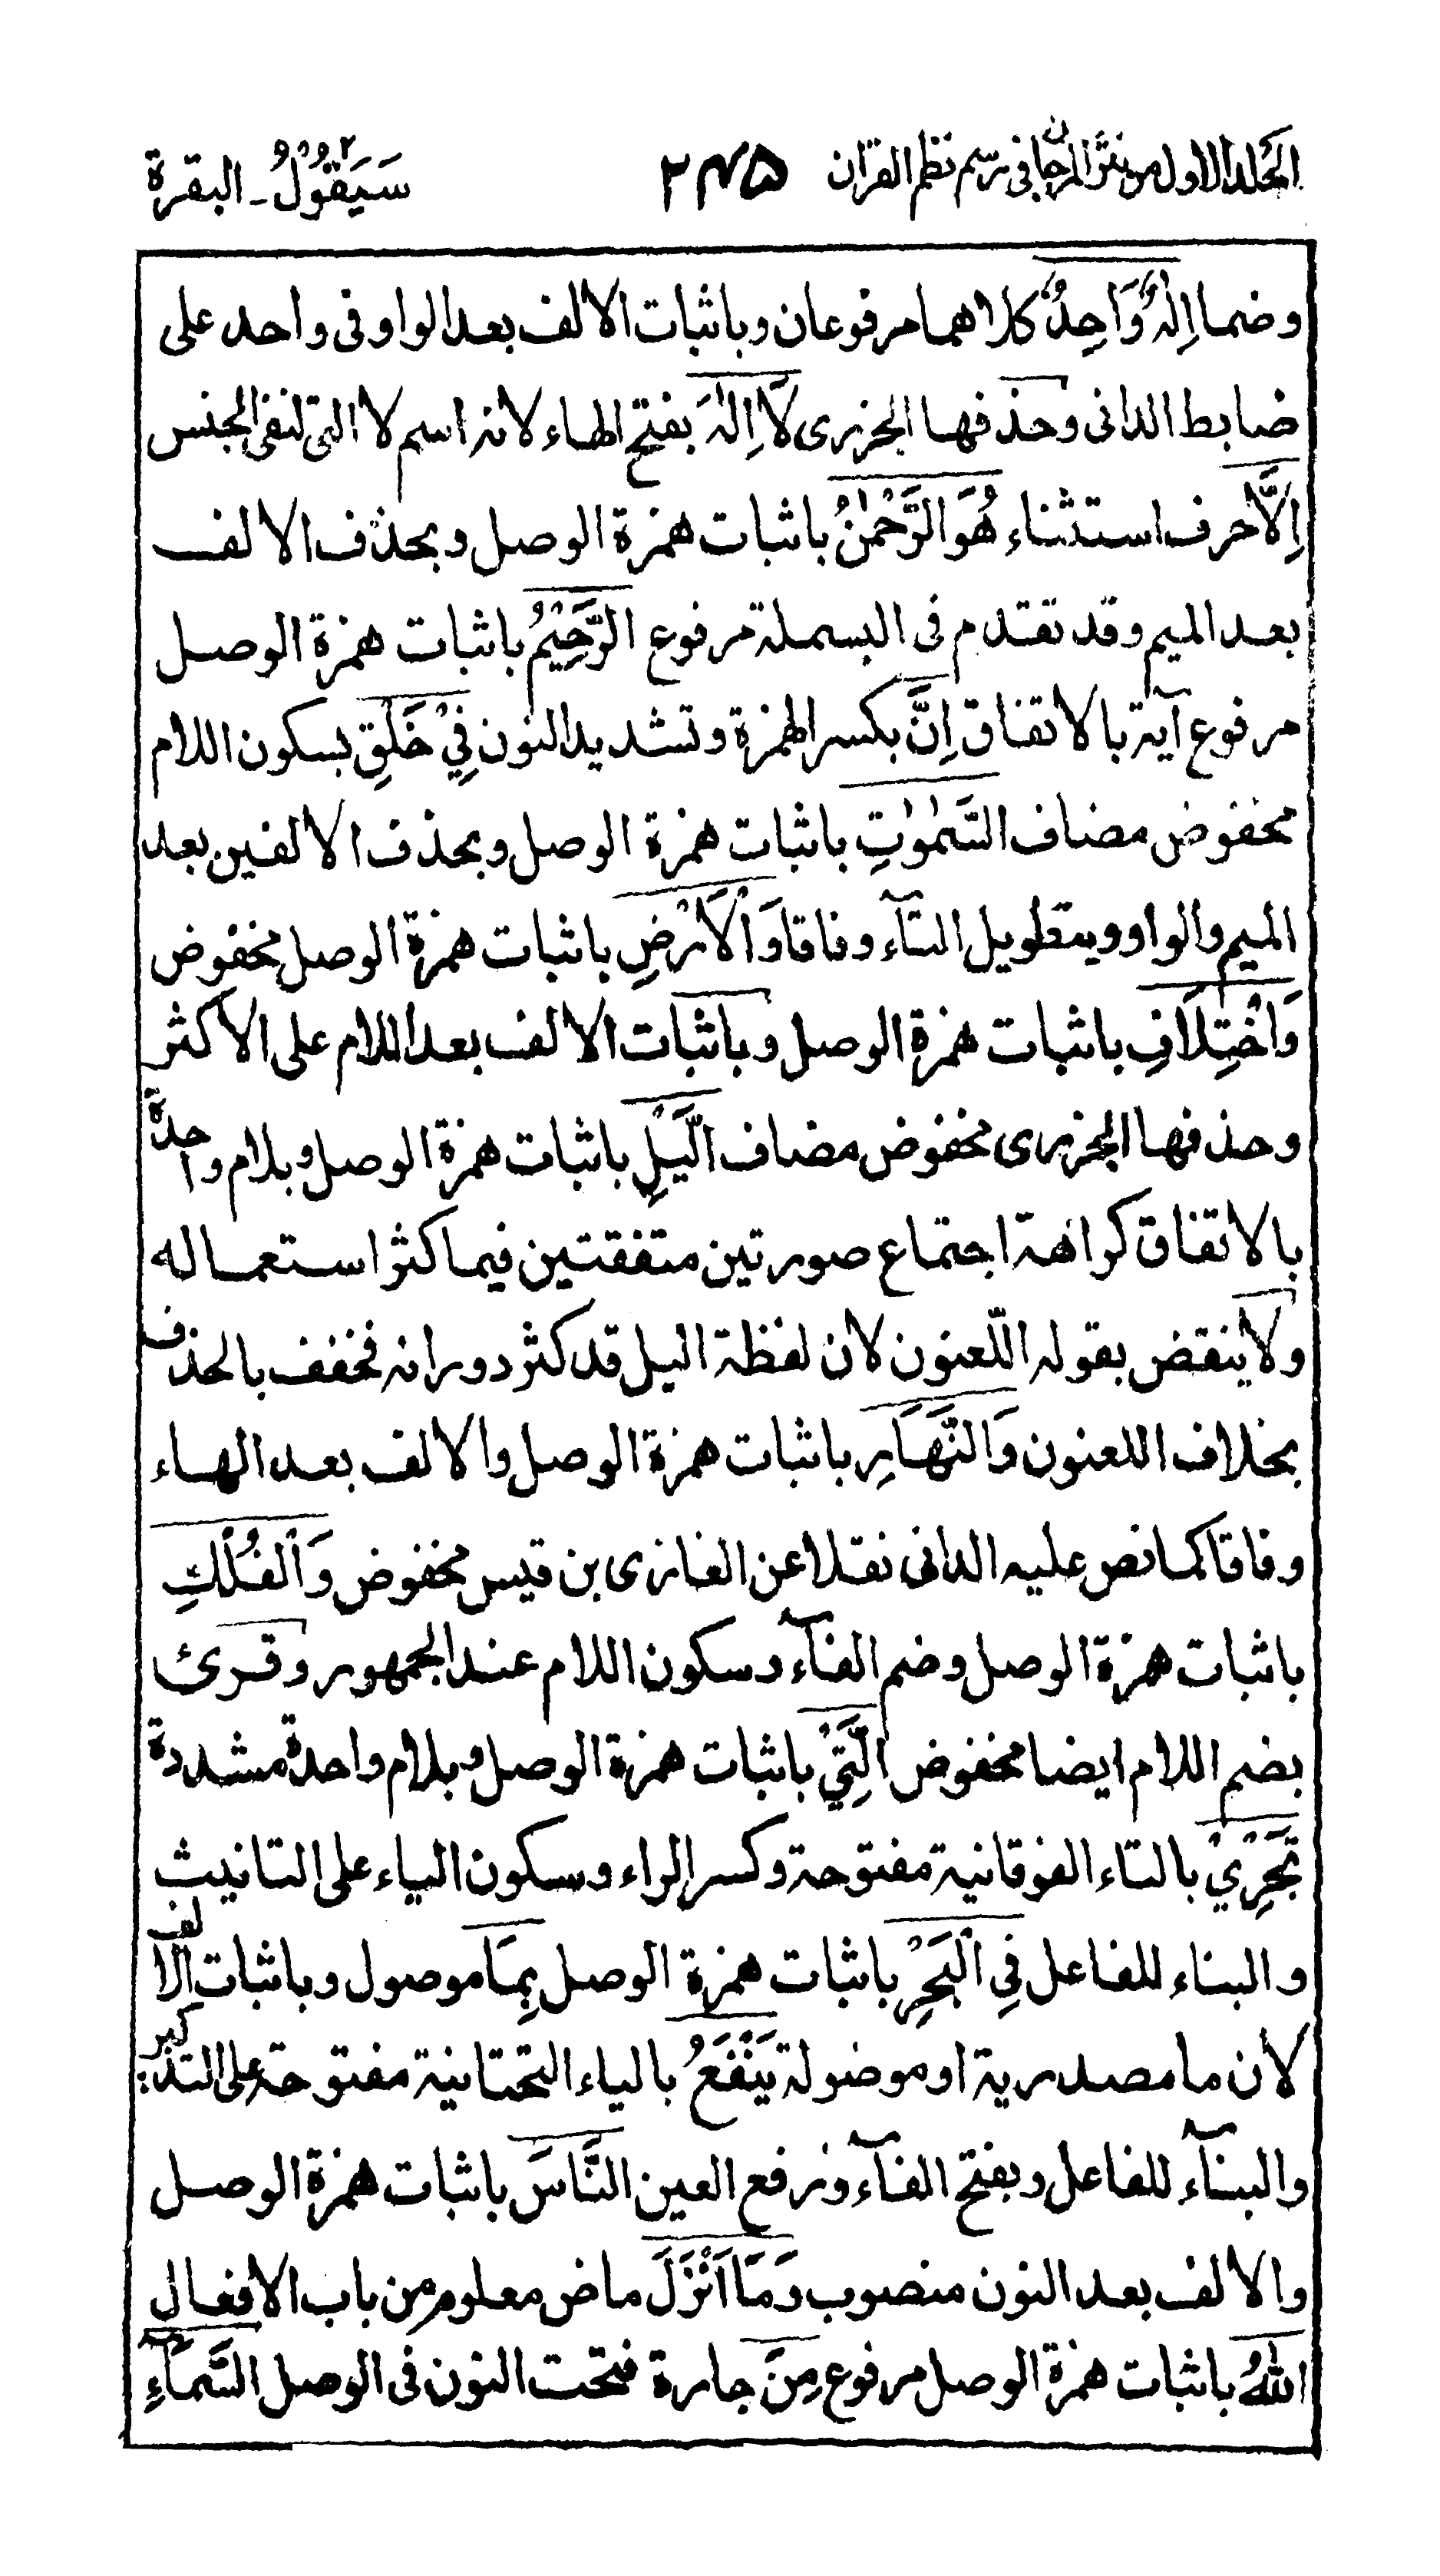 الجلد الاول من نثر المرجان فى رسم نظم القران ٢٣٥ سَيَقُوْلُ ٢ ـ البقرة
وضما اِلٰهٌ وَّاحِدٌ كلاهما مرفوعان وباثبات الالف بعد الواو فى واحد على
ضابط الدانى وحذفها الجزرى لَآ اِلٰهَ بفتح الهاء لانه اسم لا التى لنفى الجنس
اِلَّا حرف استثناء هُوَ الرَّحْمٰنُ باثبات همزة الوصل وبحذف الالف
بعد الميم وقد تقدم فى البسملة مرفوع الرَّحِيْمُ باثبات همزة الوصل
مرفوع آية بالاتفاق اِنَّ بكسر الهمزة وتشديد النون فِيْ خَلْقِ بسكون اللام
مخفوض مضاف السَّمٰوٰتِ باثبات همزة الوصل وبحذف الالفين بعد
الميم والواو وبتطويل التآء وفاقا وَالْاَرْضِ باثبات همزة الوصل مخفوض
وَاخْتِلَافِ باثبات همزة الوصل وباثبات الالف بعد اللام على الاكثر
وحذفها الجزرى مخفوض مضاف الَّيْلِ باثبات همزة الوصل وبلام واحدة
بالاتفاق كراهة اجتماع صورتين متفقتين فيما كثر استعماله
ولا ينقض بقوله اللّعنون لان لفظة اليل قد كثر دورانه فخفف بالحذف
بخلاف اللعنون وَالنَّهَارِ باثبات همزة الوصل والالف بعد الهاء
وفاقا كما نص عليه الدانى نقلا عن الغازى بن قيس مخفوض وَالْفُلْكِ
باثبات همزة الوصل وضم الفآء وسكون اللام عند الجمهور وقرئ
بضم اللام ايضا مخفوض الَّتِيْ باثبات همزة الوصل وبلام واحدة مشددة
تَجْرِيْ بالتاء الفوقانية مفتوحة وكسر الراء وسكون الياء على التانيث
والبناء للفاعل فِى الْبَحْرِ باثبات همزة الوصل بِمَا موصول وباثبات الالف
لان ما مصدرية او موضولة يَنْفَعُ بالياء التحتانية مفتوحة على التذكير
والبنآء للفاعل وبفتح الفآء ورفع العين النَّاسَ باثبات همزة الوصل
والالف بعد النون منصوب وَمَآ اَنْزَلَ ماض معلوم من باب الافعال
اللّٰهُ باثبات همزة الوصل مرفوع مِنَ جارة فتحت النون فى الوصل السَّمَآءِ